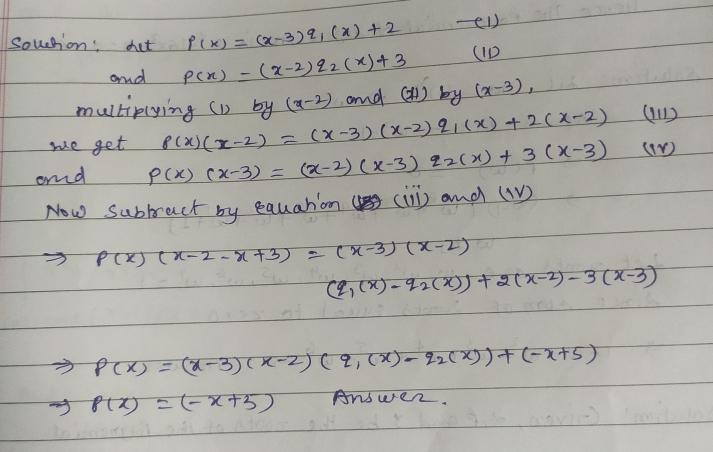 Solution: Let P(x) = (x-3) q₁(x) + 2 —(I)
and P(x) - (x-2) q₂(x) + 3 (II)
multiplying (I) by (x-2) and (II) by (x-3),
we get P(x)(x-2) = (x-3)(x-2) q₁(x) + 2(x-2) (III)
and P(x) (x-3) = (x-2)(x-3) q₂(x) + 3(x-3) (IV)
Now Subtract by equation (iii) and (IV)
⇒ P(x) (x-2-x+3) = (x-3)(x-2)
(q₁(x)-q₂(x)) + 2(x-2) - 3(x-3)
⇒ P(x) = (x-3)(x-2)(q₁(x)-q₂(x)) + (-x+5)
⇒ P(x) = (-x+5) Answer.